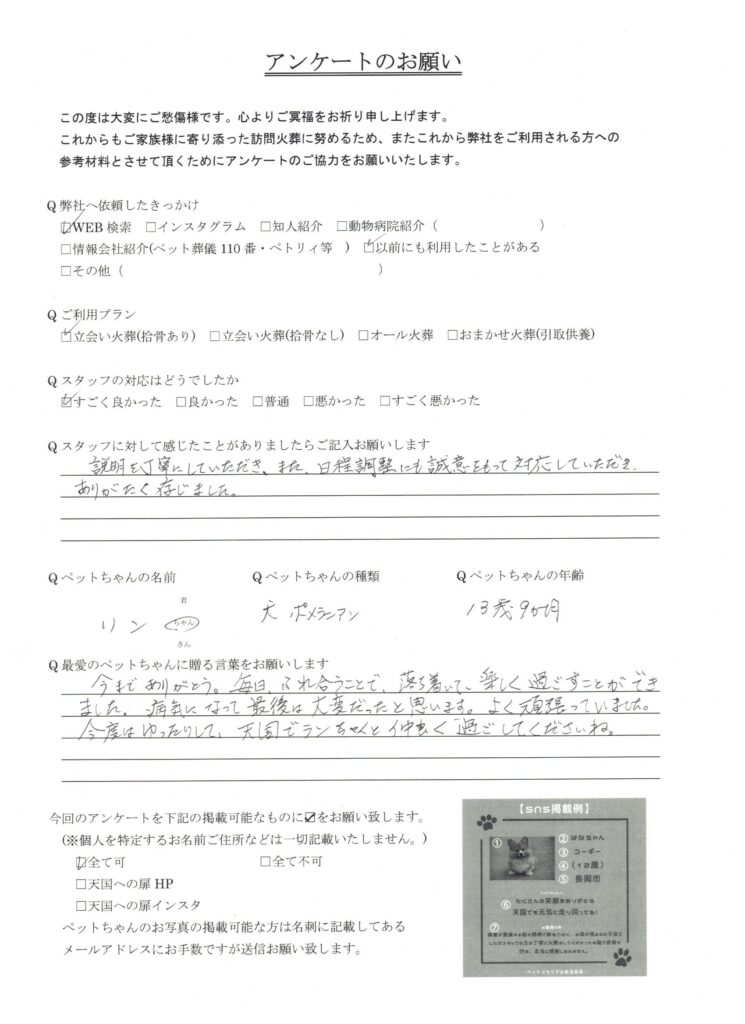 アンケートのお願い
この度は大変にご愁傷様です。心よりご冥福をお祈り申し上げます。
これからもご家族様に寄り添った訪問火葬に努めるため、またこれから弊社をご利用される方への
参考材料とさせて頂くためにアンケートのご協力をお願いいたします。
Q 弊社へ依頼したきっかけ
☑WEB 検索 □インスタグラム □知人紹介 □動物病院紹介（ ）
□情報会社紹介(ペット葬儀 110 番・ペトリィ等 ) ☑以前にも利用したことがある
□その他（ ）
Q ご利用プラン
☑立会い火葬(拾骨あり) □立会い火葬(拾骨なし) □オール火葬 □おまかせ火葬(引取供養)
Q スタッフの対応はどうでしたか
☑すごく良かった □良かった □普通 □悪かった □すごく悪かった
Q スタッフに対して感じたことがありましたらご記入お願いします
説明を丁寧にしていただき、また、日程調整にも誠意をもって対応していただき、
ありがたく存じました。
Q ペットちゃんの名前 Q ペットちゃんの種類 Q ペットちゃんの年齢
君
リン ちゃん 犬 ポメラニアン 13歳9か月
さん
Q 最愛のペットちゃんに贈る言葉をお願いします
今までありがとう。毎日、ふれ合うことで、落ち着いて、楽しく過ごすことができ
ました。病気になって最後は大変だったと思います。よく頑張っていました。
今度はゆったりして、天国でランちゃんと仲良く過ごしてくださいね。
今回のアンケートを下記の掲載可能なものに☑をお願い致します。
(※個人を特定するお名前ご住所などは一切記載いたしません。)
☑全て可 □全て不可
□天国への扉 HP
□天国への扉インスタ
ペットちゃんのお写真の掲載可能な方は名刺に記載してある
メールアドレスにお手数ですが送信お願い致します。
【sns掲載例】
① ② はなちゃん
③ コーギー
④ (12歳)
⑤ 長岡市
⑥ たくさんの笑顔をありがとう
天国でも元気に走り回ってね!
⑦